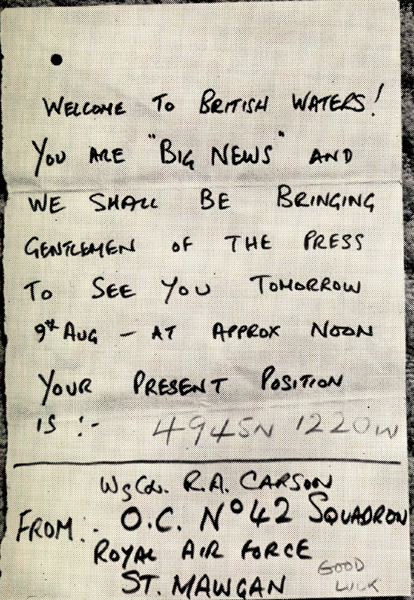 WELCOME TO BRITISH WATERS!
YOU ARE "BIG NEWS" AND
WE SHALL BE BRINGING
GENTLEMEN OF THE PRESS
TO SEE YOU TOMORROW
9th AUG – AT APPROX NOON
YOUR PRESENT POSITION
IS :- 4945N 1220W
WgCdr. R.A. CARSON
FROM:- O.C. No 42 SQUADRON
ROYAL AIR FORCE
ST. MAWGAN
GOOD
LUCK